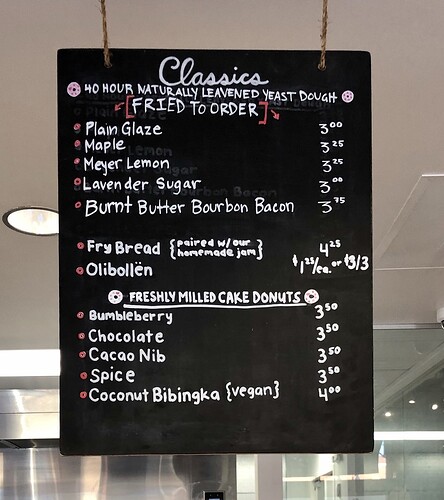 Classics
40 HOUR NATURALLY LEAVENED YEAST DOUGH
[FRIED TO ORDER]
Plain Glaze 3.00
Maple 3.25
Meyer Lemon 3.25
Lavender Sugar 3.00
Burnt Butter Bourbon Bacon 3.75
Fry Bread {paired w/our homemade jam} 4.25
Olibollën $1.25/ea. or $3/3
FRESHLY MILLED CAKE DONUTS
Bumbleberry 3.50
Chocolate 3.50
Cacao Nib 3.50
Spice 3.50
Coconut Bibingka {vegan} 4.00